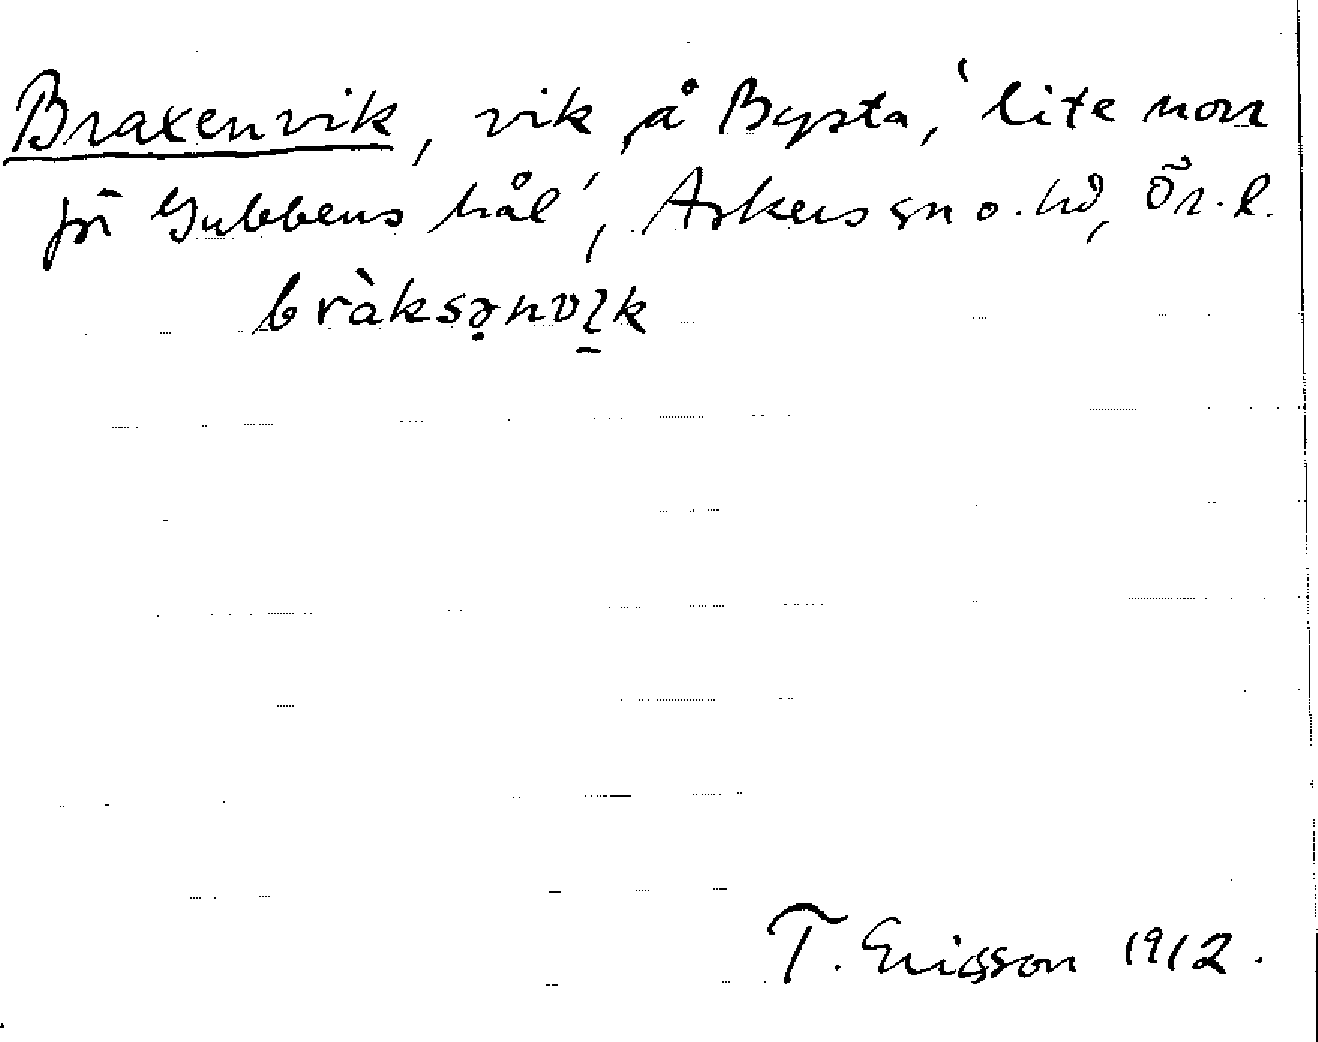 Braxenvik, vik å Bysta, 'lite norr
på Gubbens hål', Askers sn o. hd, Ör. l.
bràksənvɩk
T. Ericsson 1912.